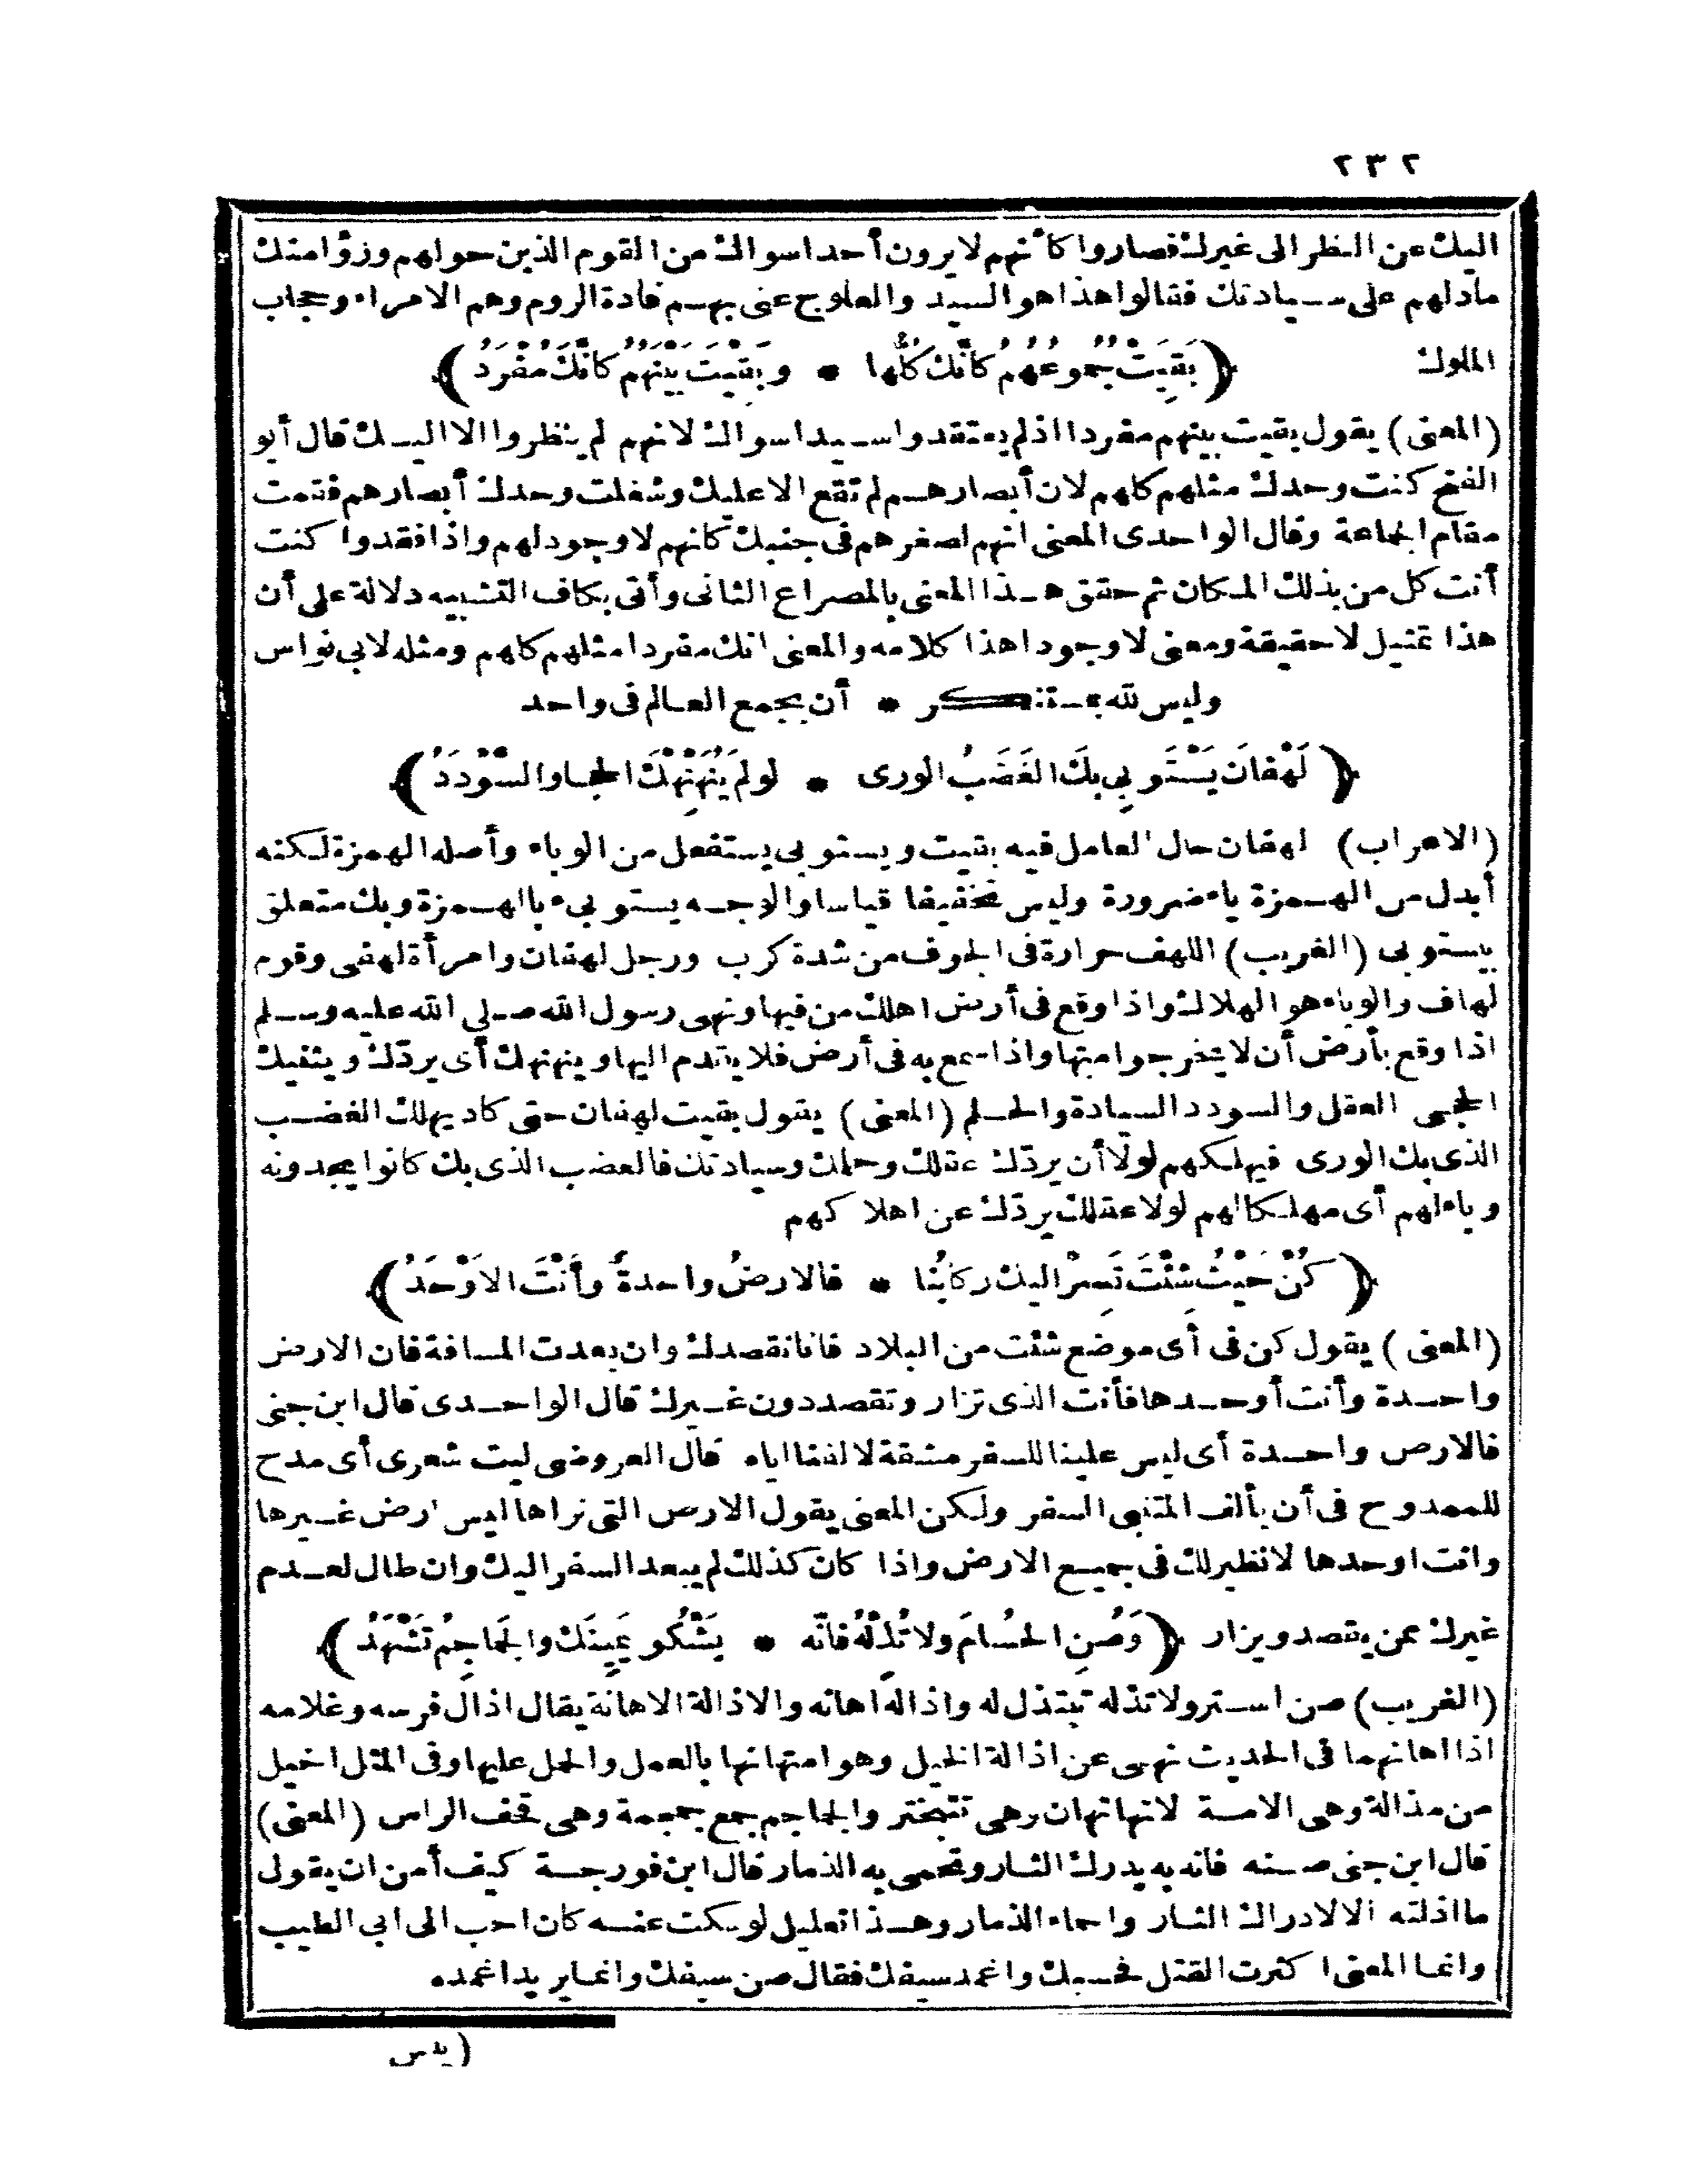 ٢٣٢
اليك عن النظر الى غيرك فصاروا كأنهم لا يرون أحدا سواك من القوم الذين حولهم وزؤا منك
مادلهم على سيادتك فقالوا هذا هو السيد والعلوج عنى بهم قادة الروم وهم الامراء وحجاب
الملوك ﴿بَقِيَتْ جُمُوعُهُمُ كَأنَّكَ كُلُّها * وبَقِيْتَ بَيْنَهُم كَأنَّكَ مُفْرَدُ﴾
(المعنى) يقول بقيت بينهم مفردا اذ لم يعتقدوا سيدا سواك لانهم لم ينظروا الا اليك قال أبو
الفتح كنت وحدك مثلهم كلهم لان أبصارهم لم تقع الا عليك وشغلت وحدك أبصارهم فقمت
مقام الجماعة وقال الواحدى المعنى انهم لصغرهم فى جنبك كانهم لا وجود لهم واذا فقدوا كنت
أنت كل من بذلك المكان ثم حقق هذا المعنى بالمصراع الثانى وأتى بكاف التشبيه دلالة على أن
هذا تمثيل لا حقيقة ومعنى لا وجودا هذا كلامه والمعنى انك مفردا مثلهم كلهم ومثله لابى نواس
وليس لله بمستنكر * أن يجمع العالم فى واحد
﴿لَهْفانَ يَسْتَوبِى بِكَ الغَضَبُ الورى * لو لم يُنَهْنِهْكَ الحجا والسُّوْدَدُ﴾
(الاعراب) لهفان حال العامل فيه بقيت ويستوبى يستفعل من الوباء وأصله الهمزة لكنه
أبدل من الهمزة ياء ضرورة وليس تخفيفا قياسا والاوجه يستوبىء بالهمزة وبك متعلق
بيستوبى (الغريب) اللهف حرارة فى الجوف من شدة كرب ورجل لهفان وامرأة لهفى وقوم
لهاف والوباء هو الهلاك واذا وقع فى أرض اهلك من فيها ونهى رسول الله صلى الله عليه وسلم
اذا وقع بأرض أن لا يخرجوا منها واذا سمع به فى أرض فلا يقدم اليها وينهنهك أى يردّك ويثنيك
الحجى العقل والسودد السيادة والحلم (المعنى) يقول بقيت لهفان حتى كاد يهلك الغضب
الذى بك الورى فيهلكهم لولا أن يردّك عقلك وحلمك وسيادتك فالغضب الذى بك كانوا يجدونه
وباء لهم أى مهلكا لهم لولا عقلك يردّك عن اهلاكهم
﴿كُنْ حَيْثُ شِئْتَ تَسِرْ اليك ركابُنا * فالارضُ واحدةٌ وأَنْتَ الاَوْحَدُ﴾
(المعنى) يقول كن فى أى موضع شئت من البلاد فانا نقصدك وان بعدت المسافة فان الارض
واحدة وأنت أوحدها فأنت الذى تزار وتقصد دون غيرك قال الواحدى قال ابن جنى
فالارض واحدة أى ليس علينا للسفر مشقة لالفنا اياه قال العروضى ليت شعرى أى مدح
للممدوح فى أن يألف المتنبى السفر ولكن المعنى يقول الارض التى نراها ليس ارض غيرها
وانت اوحدها لا نظير لك فى جميع الارض واذا كان كذلك لم يبعد السفر اليك وان طال لعدم
غيرك ممن يقصد ويزار ﴿وَصُنِ الحُسامَ ولا تُذِلْهُ فانّه * يَشْكُو يَمِينَكَ والجَماجِمُ تَشْهَدُ﴾
(الغريب) صن استر ولا تذله تبتذل له واذاله اهانه والاذالة الاهانة يقال اذال فرسه وغلامه
اذا اهانهما فى الحديث نهى عن اذالة الخيل وهو امتهانها بالعمل والحمل عليها وفى المثل اخيل
من مذالة وهى الامة لانها تهان وهى تتبختر والجماجم جمع جمجمة وهى قحف الراس (المعنى)
قال ابن جنى صنه فانه به يدرك الثار وتحمى به الذمار قال ابن فورجة كيف أمن ان يقول
ما اذلته الا لادراك الثار واحماء الذمار وهذا تعليل لو سكت عنه كان احب الى ابى الطيب
وانما المعنى اكثرت القتل فحسبك واغمد سيفك فقال صن سيفك وانما يريد اغمده